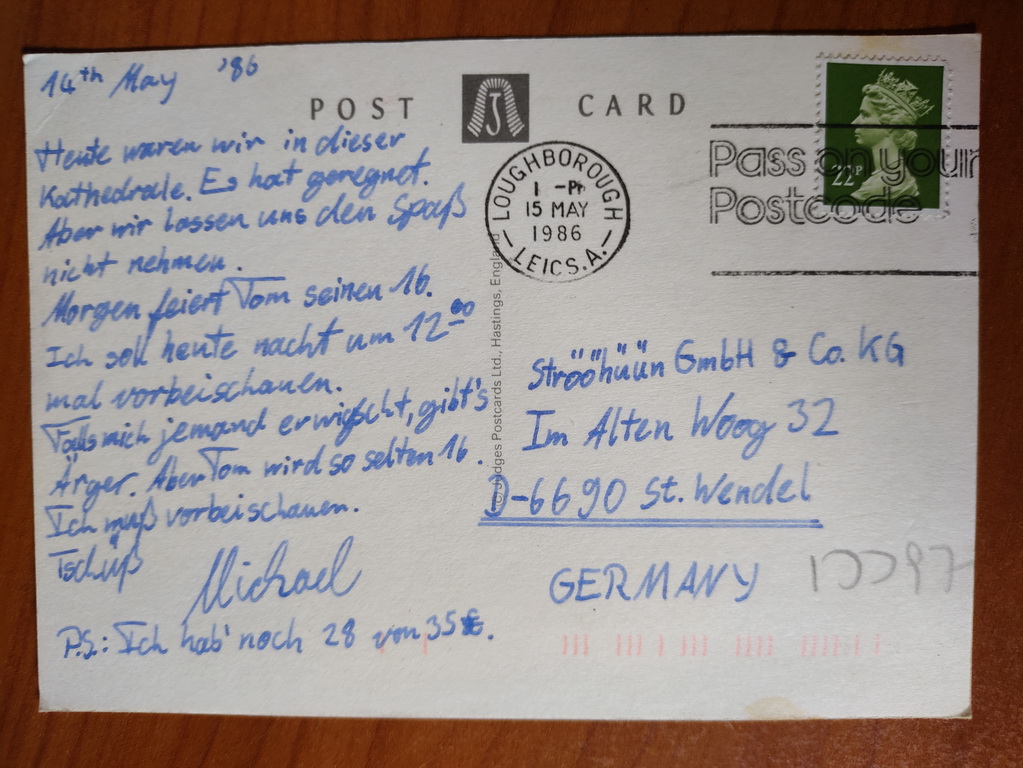 14th May '86
POST CARD
J
Heute waren wir in dieser
Kathedrale. Es hat geregnet.
Aber wir lassen uns den Spaß
nicht nehmen.
Morgen feiert Tom seinen 16.
Ich soll heute nacht um 12⁰⁰
mal vorbeischauen.
Falls mich jemand erwischt, gibt's
Ärger. Aber Tom wird so selten 16.
Ich muß vorbeischauen.
Tschüß
Michael
P.S.: Ich hab' noch 28 von 35 £.
LOUGHBOROUGH
1 -PM
15 MAY
1986
LEICS.A.
Pass on your
Postcode
22P
Judges Postcards Ltd., Hastings, England
Ströööhüüün GmbH & Co. KG
Im Alten Woog 32
D-6690 St. Wendel
GERMANY